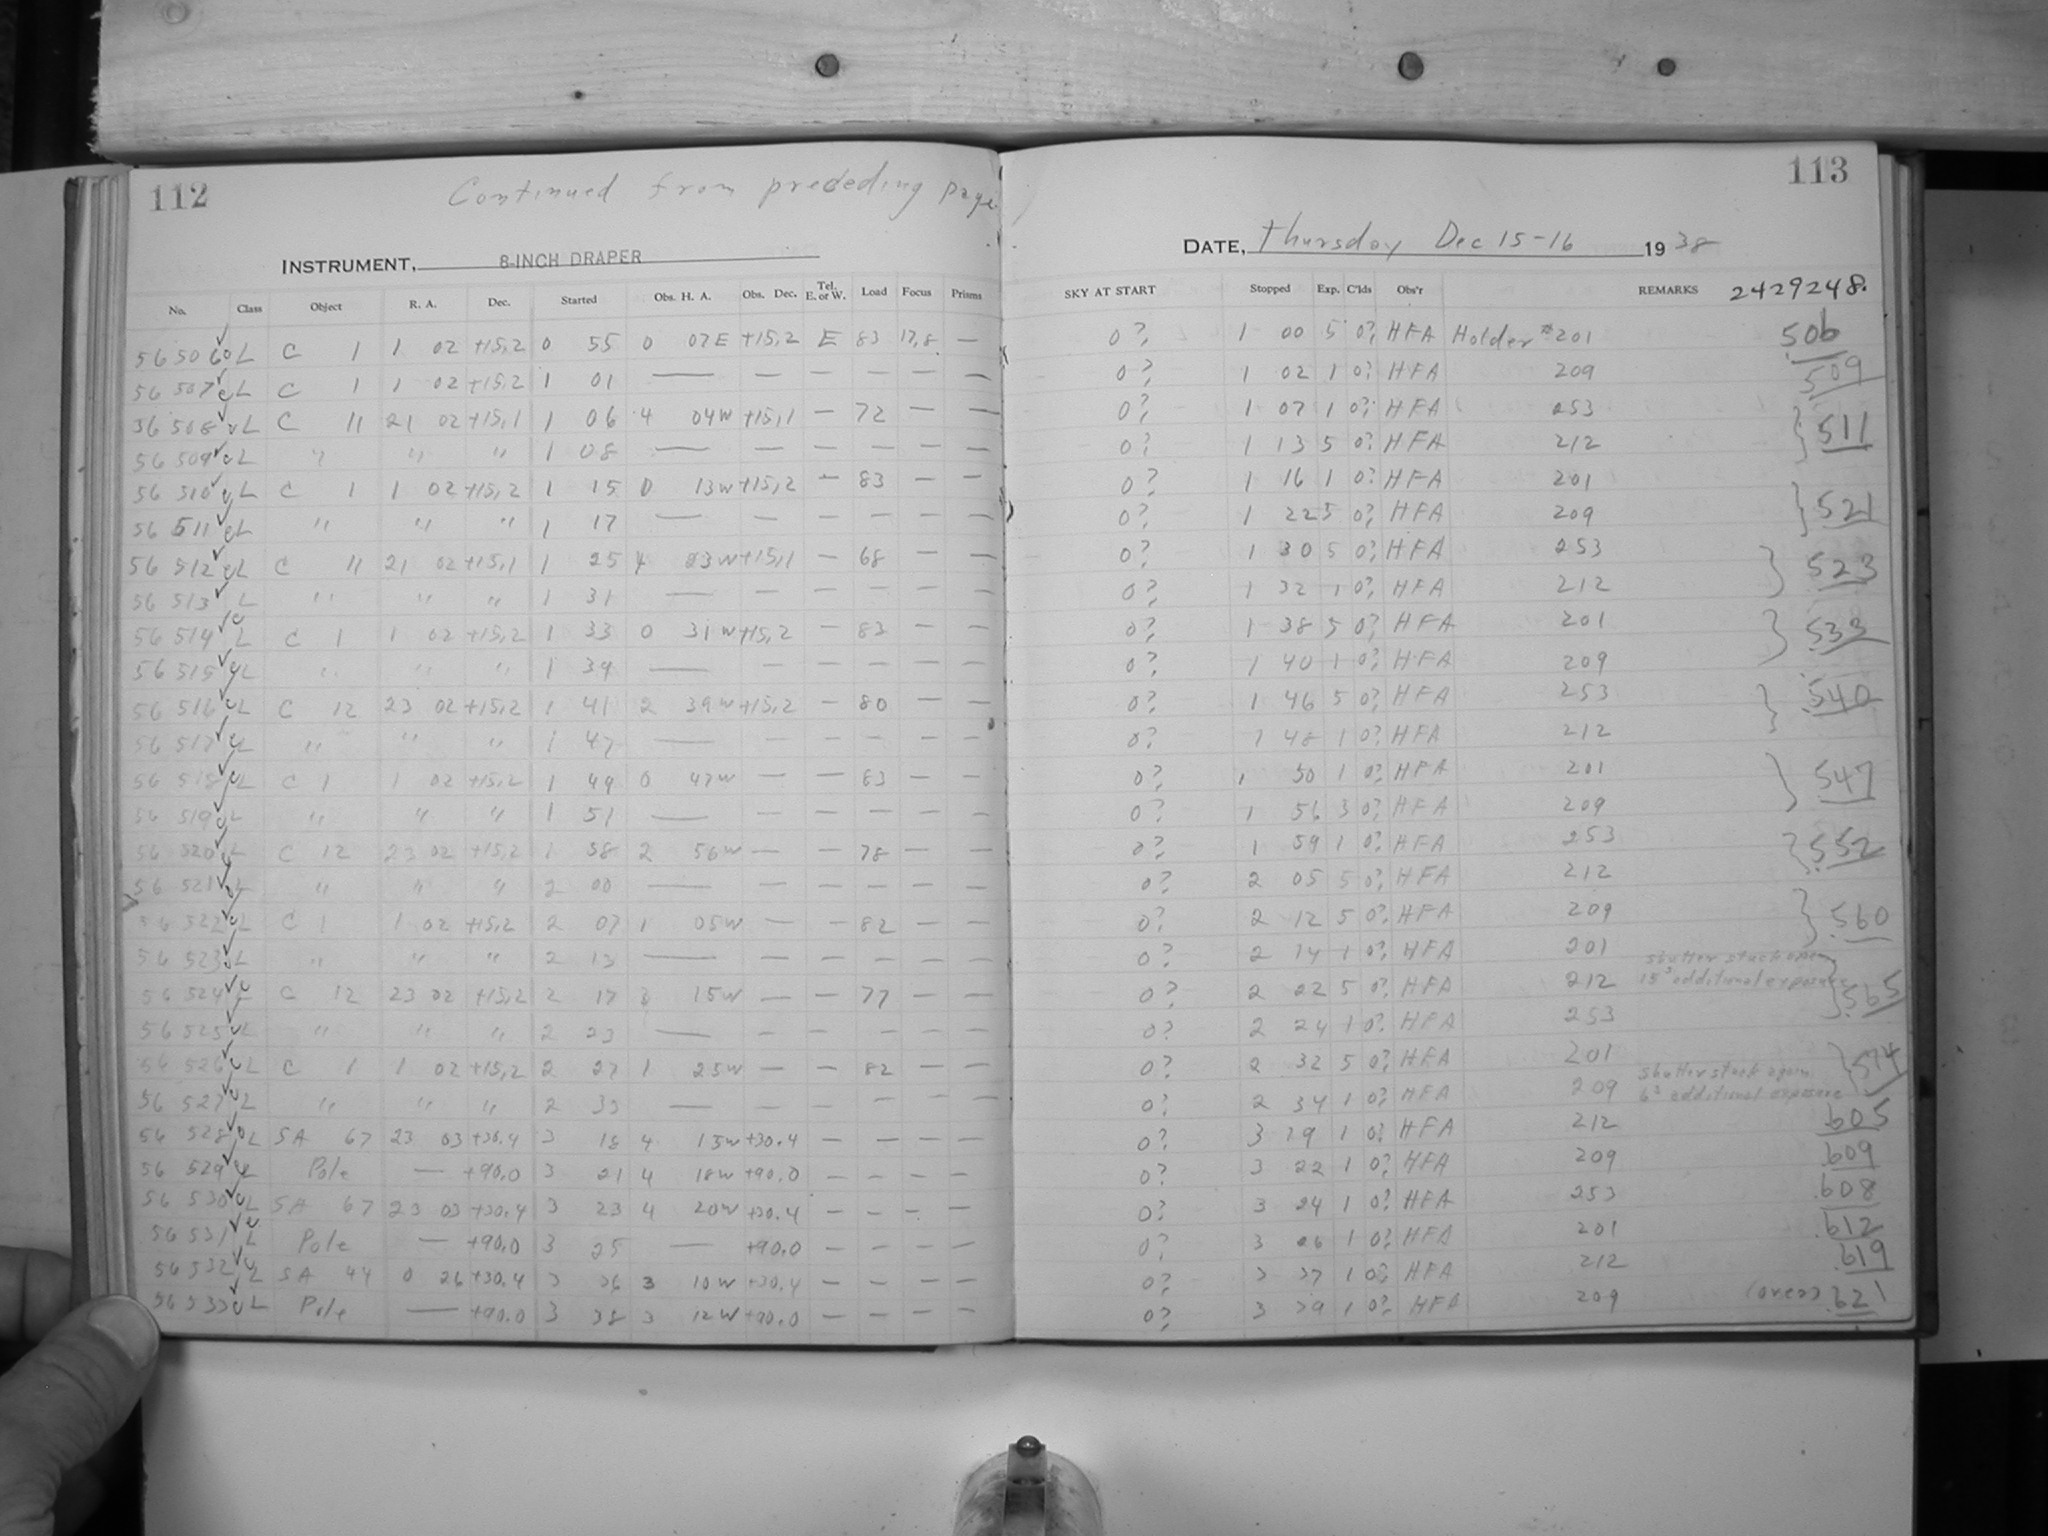 112
Continued from preceding page
INSTRUMENT, 8-INCH DRAPER
No. Class Object R. A. Dec. Started Obs. H. A. Obs. Dec. Tel. E. or W. Load Focus Prisms
56 506 cL C 1 1 02 +15,2 0 55 0 07E +15,2 E 83 17,8 —
56 507 cL C 1 1 02 +15,2 1 01 — — — — — —
56 508 cL C 11 21 02 +15,1 1 06 4 04W +15,1 — 72 — —
56 509 cL " " " 1 08 — — — — — —
56 510 cL C 1 1 02 +15,2 1 15 0 13W +15,2 — 83 — —
56 511 cL " " " 1 17 — — — — — —
56 512 cL C 11 21 02 +15,1 1 25 4 23W +15,1 — 68 — —
56 513 L " " " 1 31 — — — — — —
56 514 cL C 1 1 02 +15,2 1 33 0 31W +15,2 — 83 — —
56 515 cL " " " 1 39 — — — — — —
56 516 cL C 12 23 02 +15,2 1 41 2 39W +15,2 — 80 — —
56 517 cL " " " 1 47 — — — — — —
56 518 cL C 1 1 02 +15,2 1 49 0 47W — — 83 — —
56 519 cL " " " 1 51 — — — — — —
56 520 cL C 12 23 02 +15,2 1 58 2 56W — — 78 — —
56 521 cL " " " 2 00 — — — — — —
56 522 cL C 1 1 02 +15,2 2 07 1 05W — — 82 — —
56 523 cL " " " 2 13 — — — — — —
56 524 cL C 12 23 02 +15,2 2 17 3 15W — — 77 — —
56 525 cL " " " 2 23 — — — — — —
56 526 cL C 1 1 02 +15,2 2 27 1 25W — — 82 — —
56 527 cL " " " 2 33 — — — — — —
56 528 cL SA 67 23 03 +30.4 3 18 4 15W +30.4 — — — —
56 529 cL Pole — +90.0 3 21 4 18W +90.0 — — — —
56 530 cL SA 67 23 03 +30.4 3 23 4 20W +30.4 — — — —
56 531 cL Pole — +90.0 3 25 — +90.0 — — — —
56 532 cL SA 44 0 26 +30.4 3 36 3 10W +30.4 — — — —
56 533 cL Pole — +90.0 3 38 3 12W +90.0 — — — —
113
DATE, Thursday Dec 15-16 1938
SKY AT START Stopped Exp. C'lds Obs'r REMARKS 2429248.
0? 1 00 5 0? HFA Holder #201 506
0? 1 02 1 0? HFA 209 509
0? 1 07 1 0? HFA 253
0? 1 13 5 0? HFA 212 } 511
0? 1 16 1 0? HFA 201
0? 1 22 5 0? HFA 209 } 521
0? 1 30 5 0? HFA 253
0? 1 32 1 0? HFA 212 } 523
0? 1 38 5 0? HFA 201
0? 1 40 1 0? HFA 209 } 533
0? 1 46 5 0? HFA 253
0? 1 48 1 0? HFA 212 } 540
0? 1 50 1 0? HFA 201
0? 1 56 5 0? HFA 209 } 547
0? 1 59 1 0? HFA 253
0? 2 05 5 0? HFA 212 } 552
0? 2 12 5 0? HFA 209
0? 2 14 1 0? HFA 201 } 560
shutter stuck open
0? 2 22 5 0? HFA 212 15s additional exposure
0? 2 24 1 0? HFA 253 } 565
0? 2 32 5 0? HFA 201
shutter stuck again
0? 2 34 1 0? HFA 209 6s additional exposure } 574
0? 3 19 1 0? HFA 212 605
0? 3 22 1 0? HFA 209 609
0? 3 24 1 0? HFA 253 608
0? 3 26 1 0? HFA 201 612
0? 3 37 1 0? HFA 212 619
0? 3 39 1 0? HFA 209 (over) 621